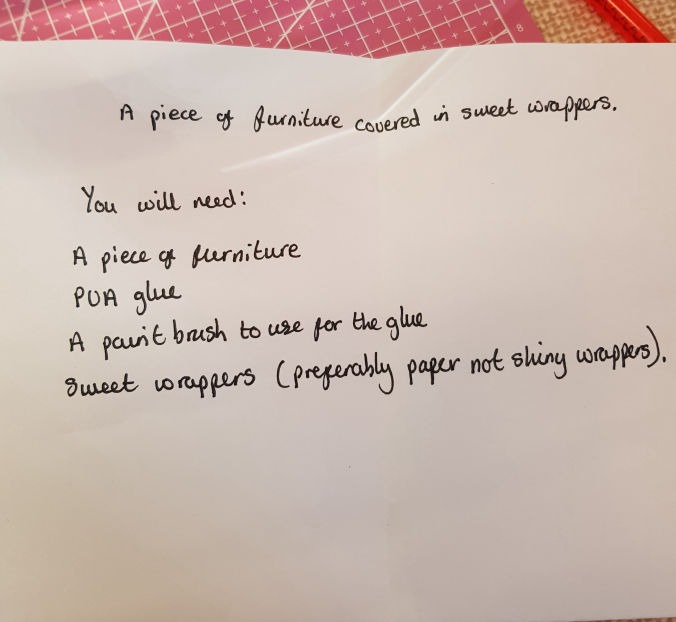 8
A piece of furniture covered in sweet wrappers.
You will need:
A piece of furniture
PUA glue
A paint brush to use for the glue
Sweet wrappers (preferably paper not shiny wrappers).